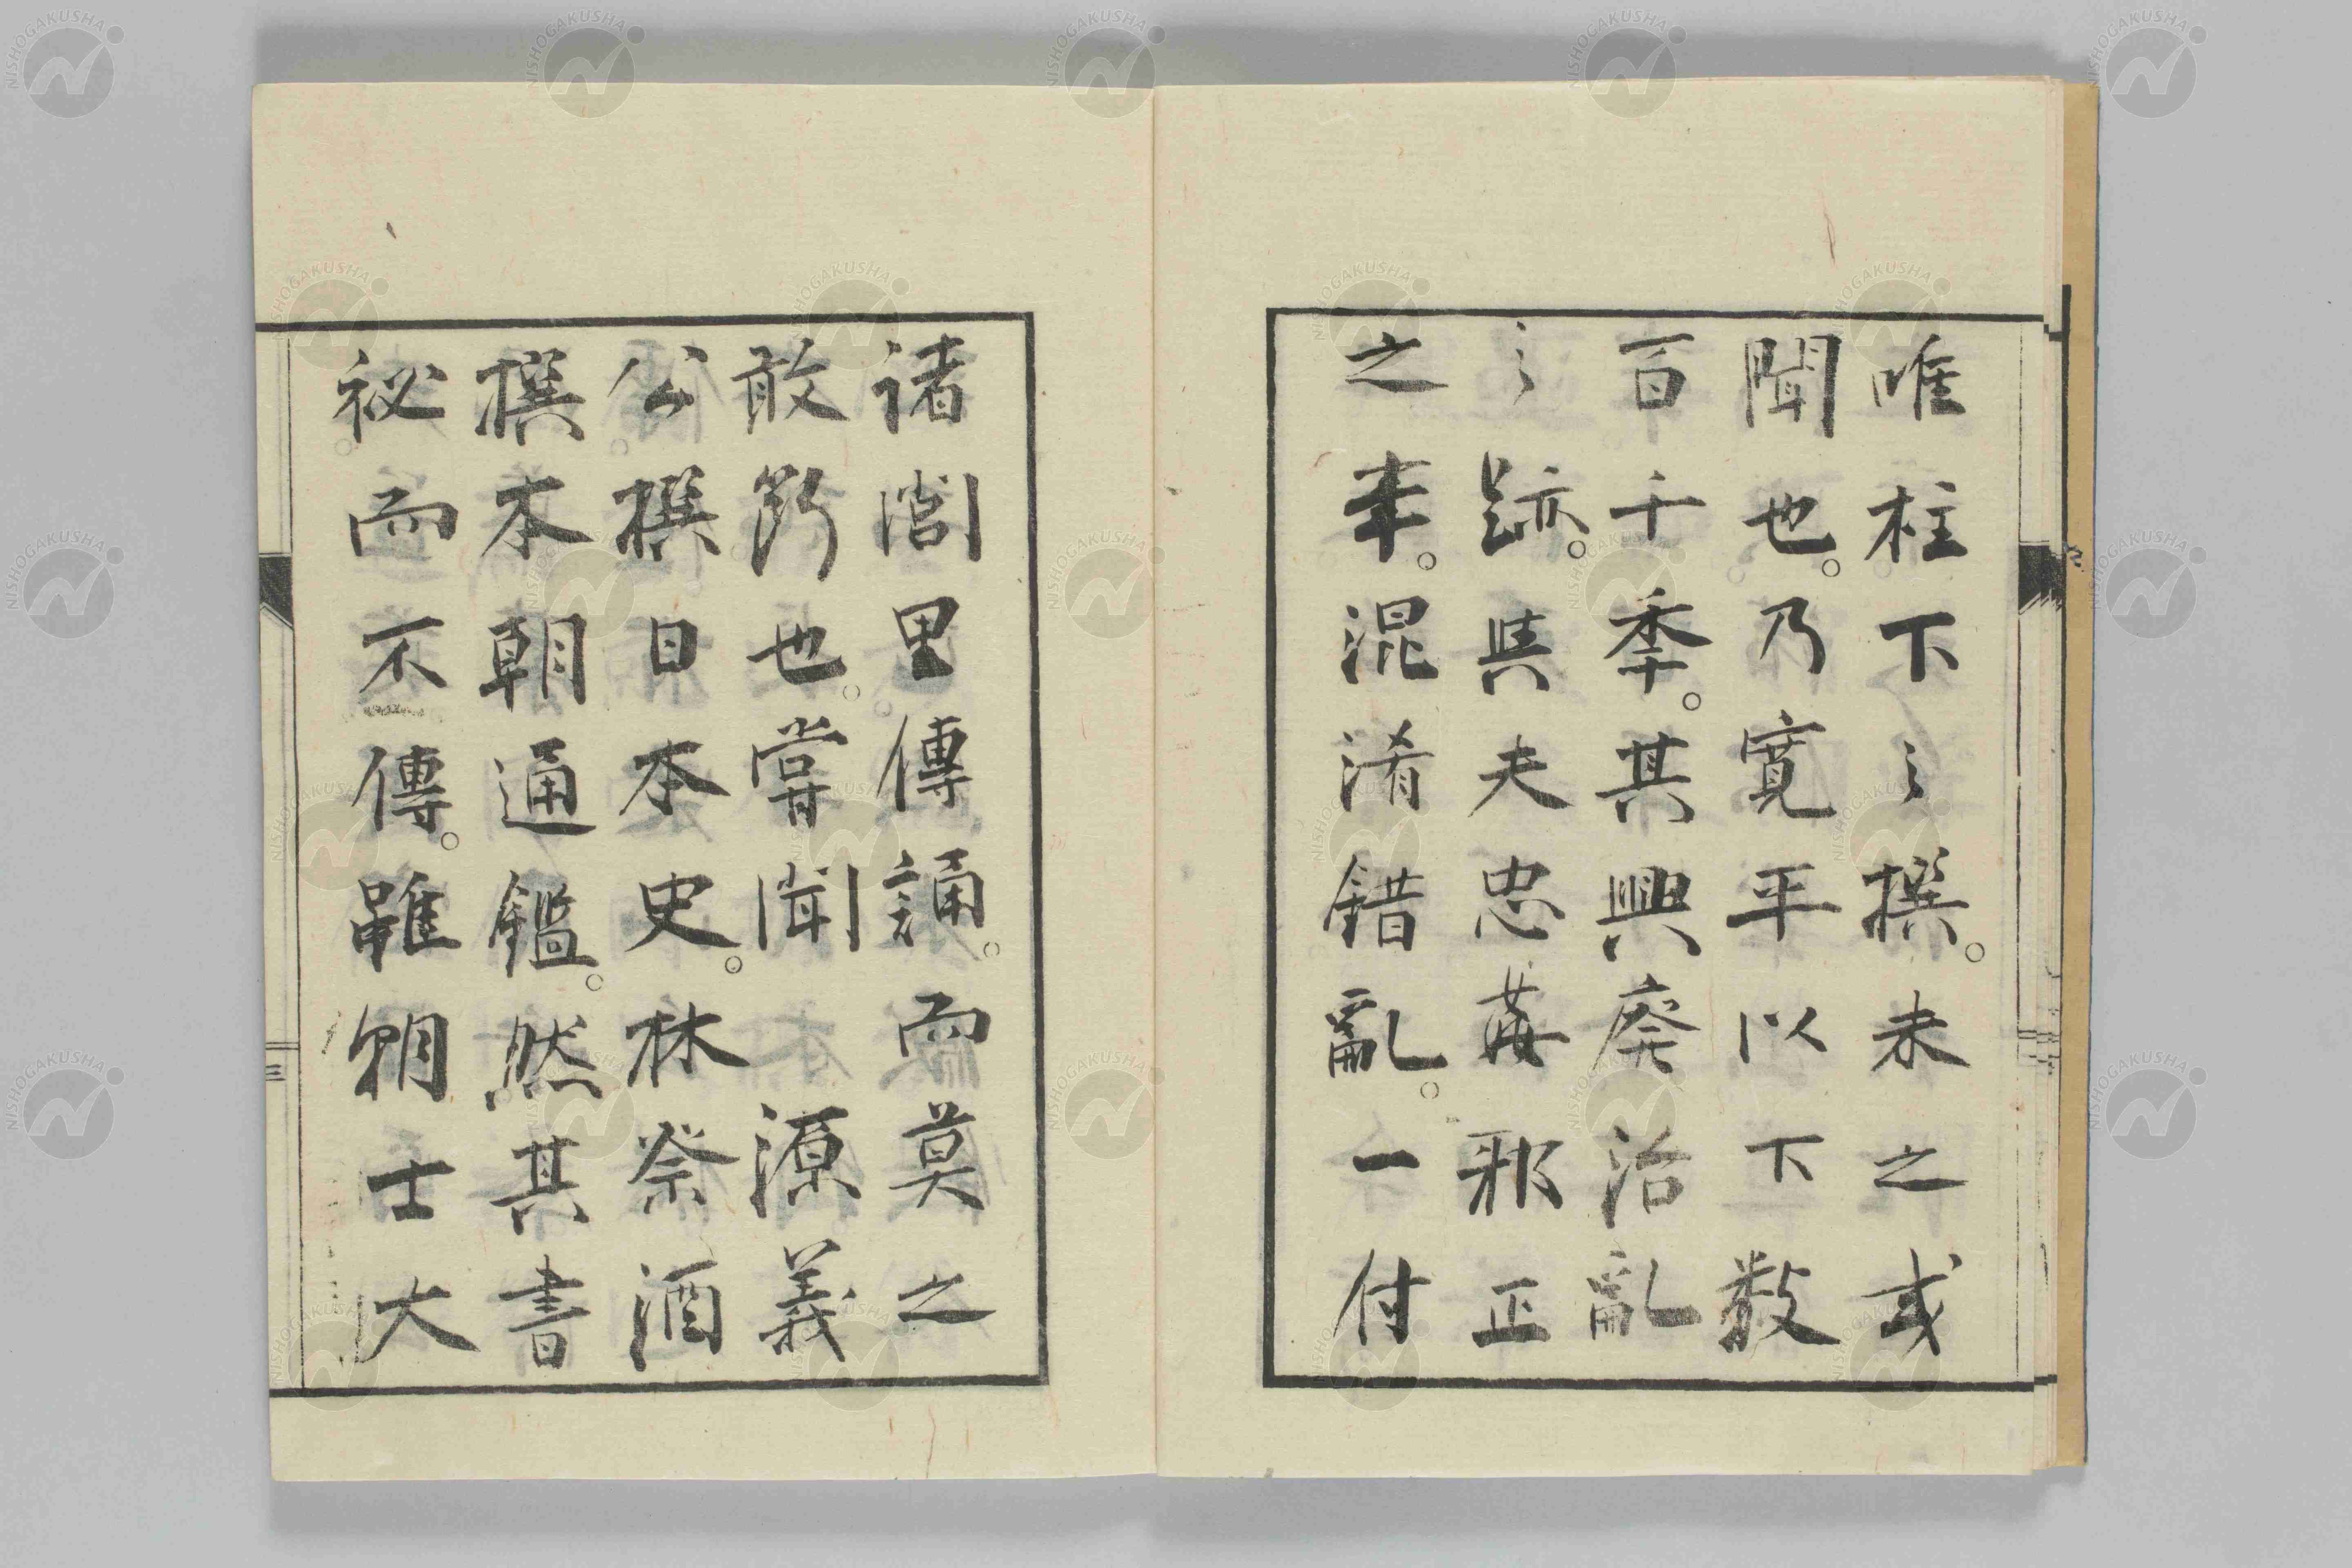 唯柱下之撰。未之或
聞也。乃寛平以下數
百千季。其興廃治亂
之跡。與夫忠姦邪正
之事。混淆錯亂。一付
諸閭里傳誦。而莫之
敢斷也。嘗聞 源義
公撰日本史。林祭酒
撰本朝通鑑。然其書
祕而不傳。雖朝士大
三
NISHOGAKUSHA